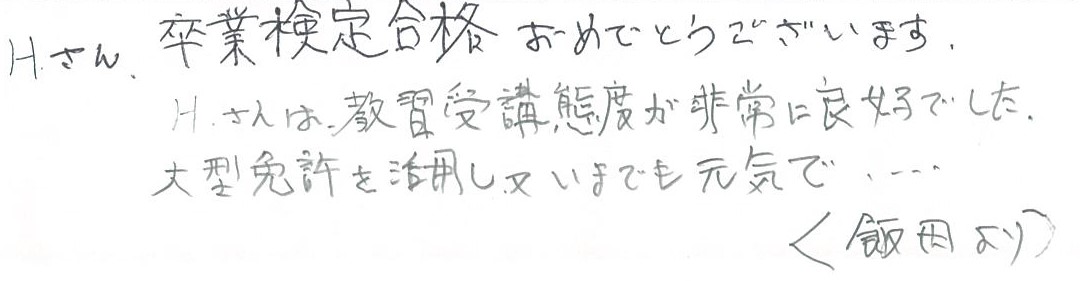 H.さん、卒業検定合格おめでとうございます.
H.さんは、教習受講態度が非常に良好でした.
大型免許を活用し、いまでも元気で、....
<飯田より>